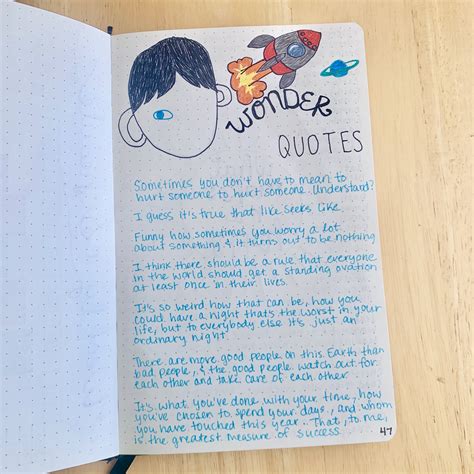 WONDER
QUOTES
Sometimes you don't have to mean to
hurt someone to hurt someone. Understand?
I guess it's true that like seeks like.
Funny how sometimes you worry a lot
about something & it turns out to be nothing
I think there should be a rule that everyone
in the world should get a standing ovation
at least once in their lives.
It's so weird how that can be, how you
could have a night that's the worst in your
life, but to everybody else it's just an
ordinary night
There are more good people on this Earth than
bad people, & the good people watch out for
each other and take care of each other
It's what you've done with your time, how
you've chosen to spend your days, and whom
you have touched this year. That, to me,
is the greatest measure of success
47